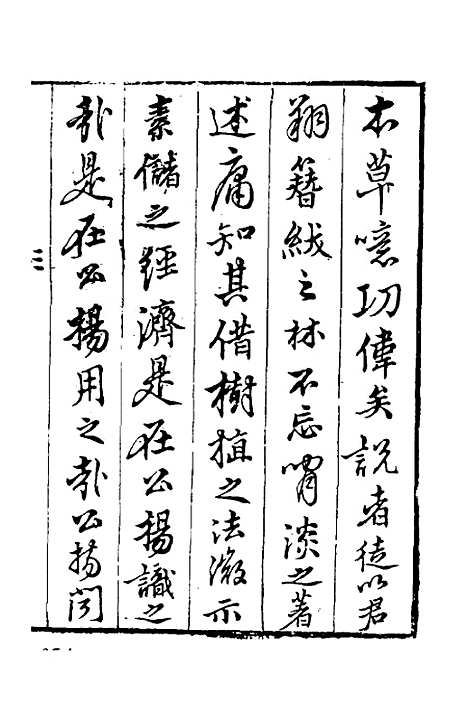 本草噫功偉矣說者徒以君
翔簪紱之林不忘嘯淡之著
述庸知其借樹植之法微示
素儲之經濟是在公揚識之
耳是在公揚用之耳公揚聞
三